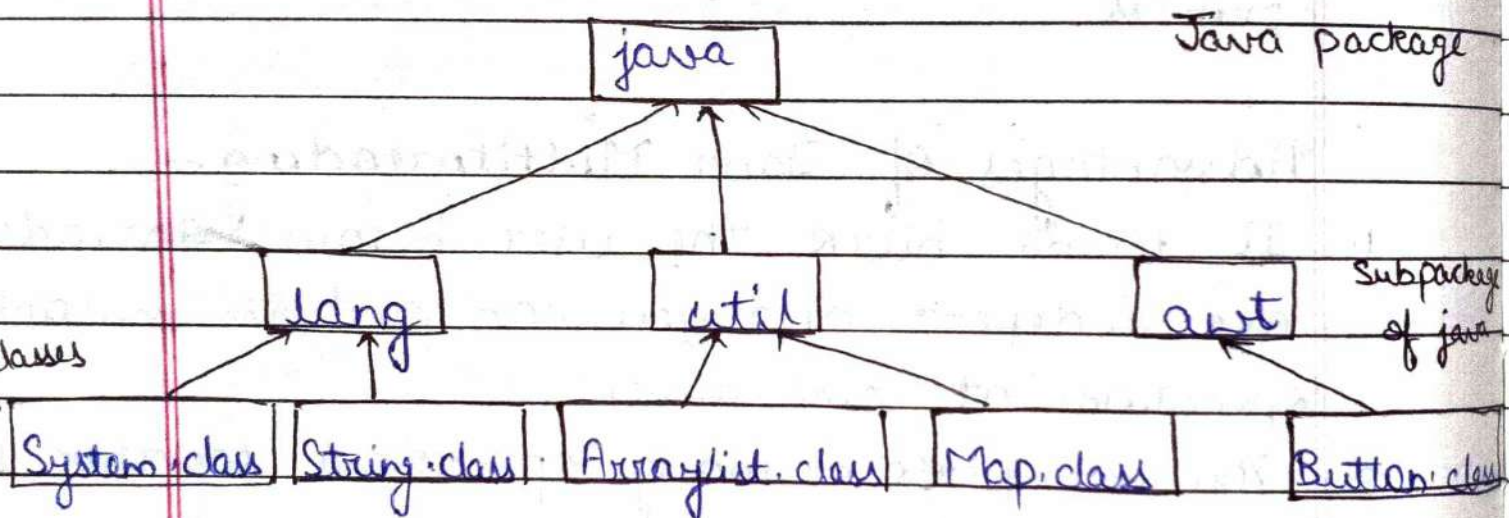 java
Java package
lang
util
awt
Subpackage
of java
classes
System.class
String.class
Arraylist.class
Map.class
Button.class